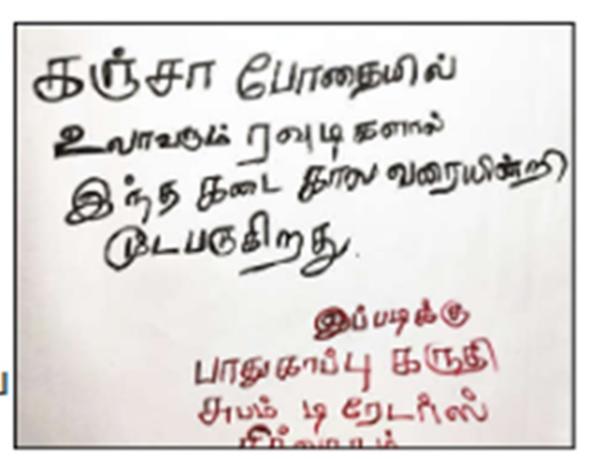 கஞ்சா போதையில்
உலாவரும் ரவுடிகளால்
இந்த கடை கால வரையின்றி
மூடபடுகிறது.
இப்படிக்கு
பாதுகாப்பு கருதி
சுபம் டிரேடர்ஸ்